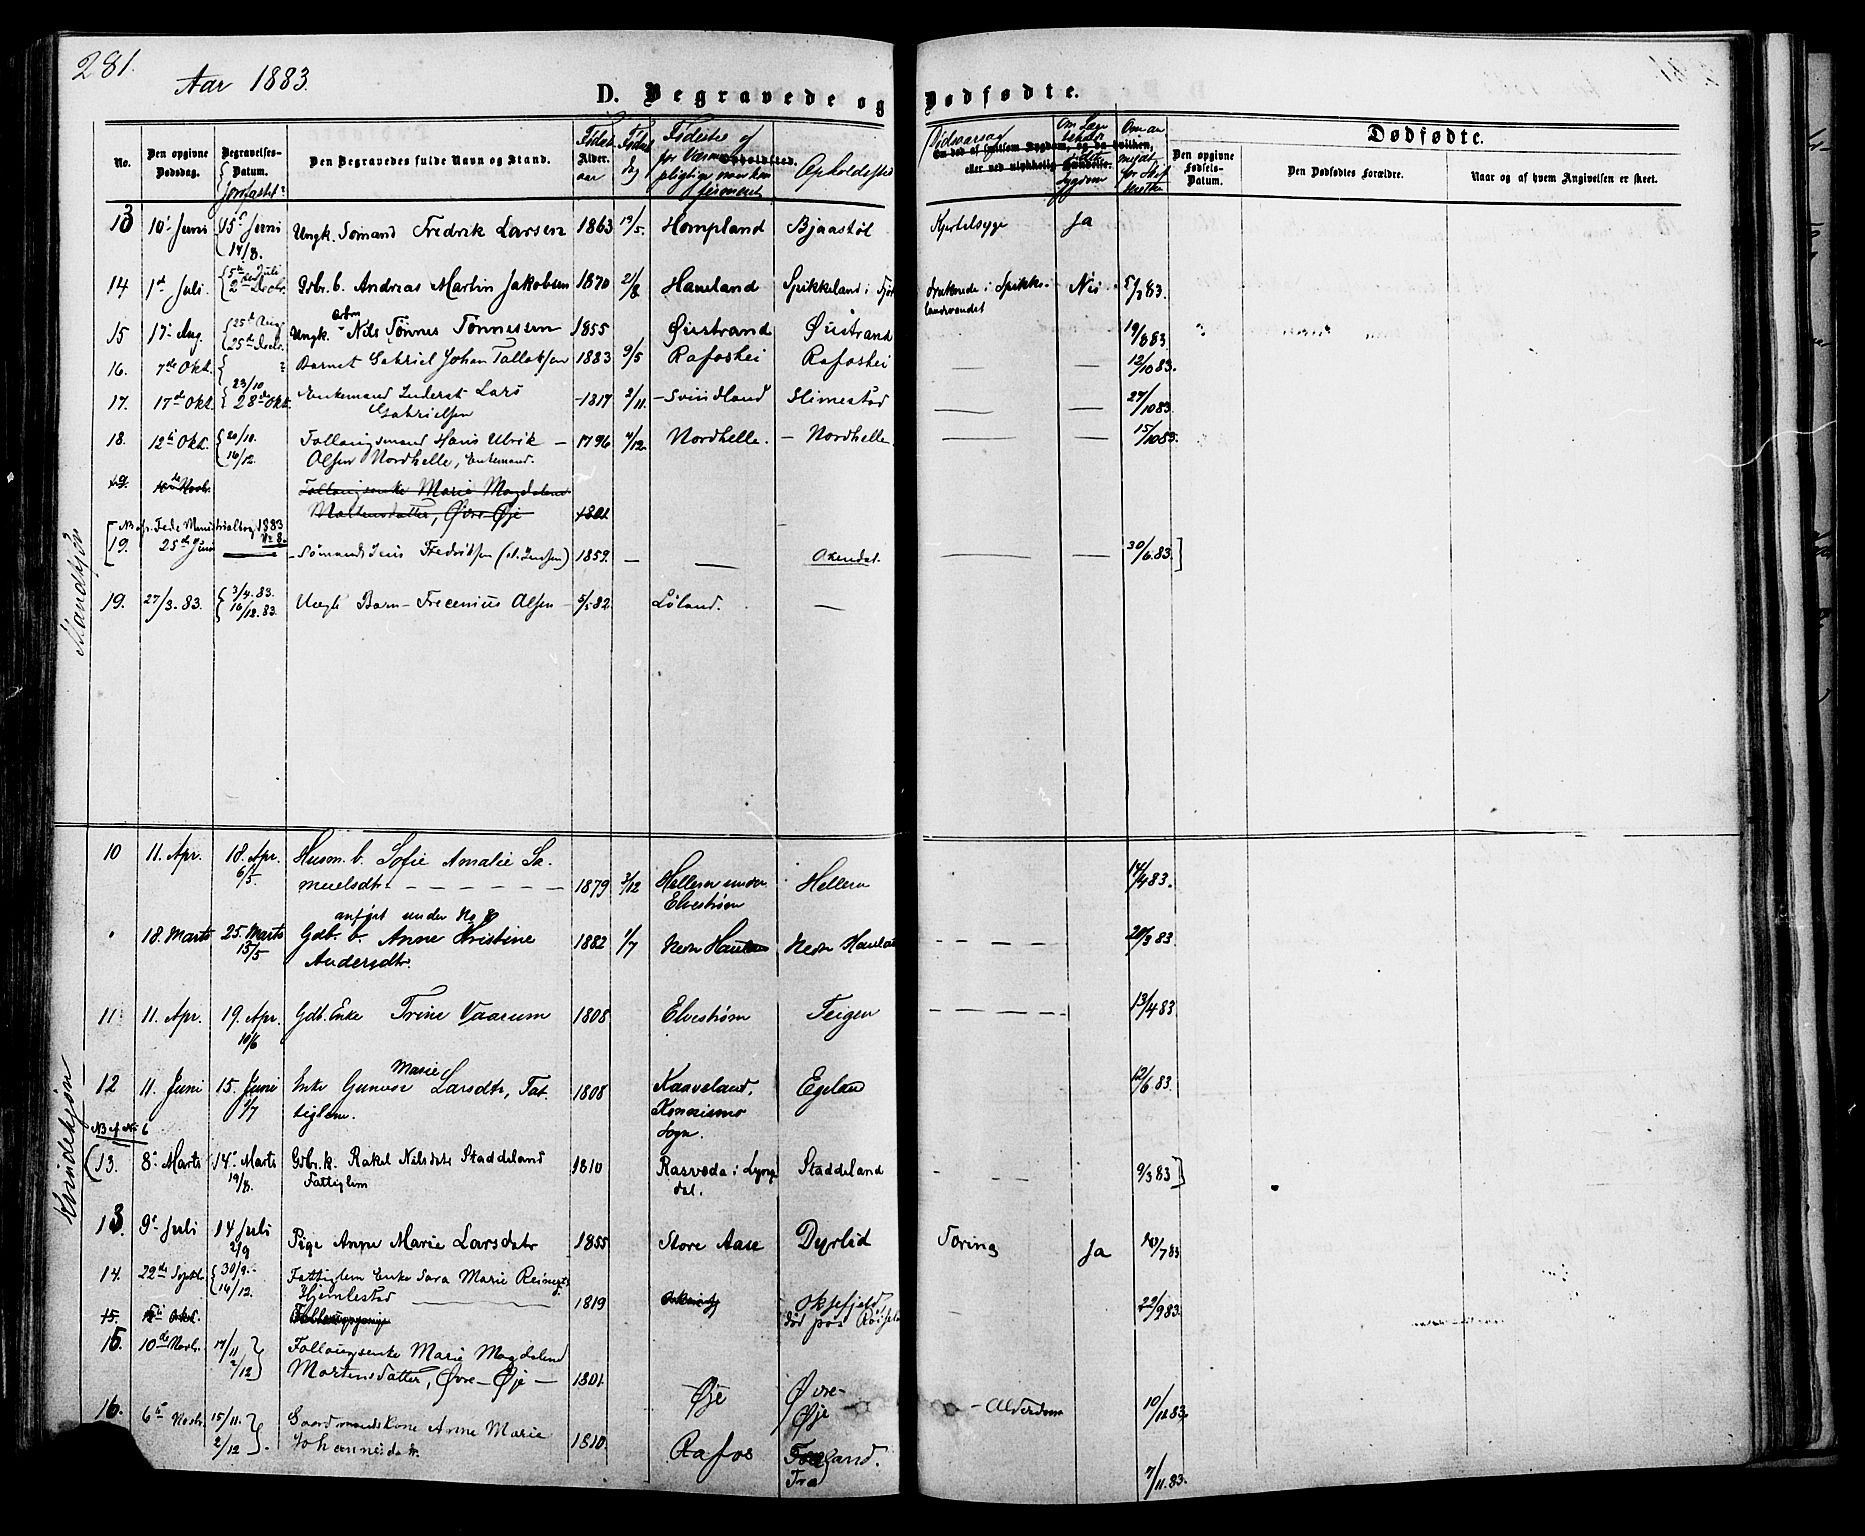 281.
Aar 1883.
D. Begravede og Dødfødte.
No. Den opgivne Dødsdag. Begravelses-Datum. Jordfæstet? Den Begravedes fulde Navn og Stand. Fødselsaar Fødested og Opholdssted Dødsaarsag Om Læge Om anmeldt for Skifteretten
Dødfødte.
Den opgivne Fødsels-Datum. Den Dødfødtes Forældre. Naar og af hvem Angivelsen er skeet.
Mandkjøn
13 10' Juni 15' Juni 17/8. Ungk. Sømand Fredrik Larsen 1863 19/5. Hompland Bjaastøl Kjertelsyge Ja
14 1st Juli. 5te Juli 2den Decbr. Gdbr. b. Andreas Martin Jakobsen 1870 21/8 Haneland Spikkeland i Fjot druknede i Spikkelandsvandet Nei 5/7 83.
15 17' Aug. 25de Aug. 25de Decbr. Ungk. Arbm. Nils Tønnes Tønnessen 1855 Øiestrand Øiestrand 19/8 83.
16. 7de Okt. ? Barnet Gabriel Johan Tallaksen 1883 9/5 Rafoshei Rafoshei — — 12/10 83.
17. 17de Okt. 23/10 28de Okt. Enkemand Inderst Lars Gabrielsen 1817 2/11. Svindland Slimestad — — 27/10 83.
18. 12te Okt. 20/10. 16/12. Follaugsmand Hans Ulrik Olsen Nordhelle, Enkemand. 1796 4/12. Nordhelle. Nordhelle — — 15/10 83.
19. Novbr. Follaugsenke Marie Magdalene Mortensdatter, Øvre-Øje 1801
[NB opr. Fede Ministerialbog 1883 No 8.
19. 25de Juni — Sømand Jens Fredriksen (A. Jensen) 1859. — — Aamdal. — — 30/6. 83.]
19. 27/3. 83. 3/4. 83. 16/12. 83. Uægte Barn Frecenius Olsen 5/5 82. Løland. —
Kvindekjøn
10 11. Apr. 18. Apr. 6/5. Husm. b. Sofie Amalie Samuelsdtr. 1879 3/12 Hellern under Elvestrøm Hellern 14/4 83.
18. Marts 25. Marts 13/5 anført under No 8 Gdb. b. Anne Kristine Andersdtr. 1882 1/7 Nedr Hauland Nedr Hauland 20/3 83
11 11. Apr. 19. Apr. 10/6 Gdb. Enke Trine Vaarum 1808 Elvestrøm Teigen 13/4 83
12 11. Juni 15. Juni 1/7 Enke Gunvor Marie Larsdtr, Fattiglem. 1808 Kaaveland, Konsmo Sogn. Egeland 12/6 83.
NB f. No 6
(13. 8' Marts 14' Marts 19/8. Gdbr. k. Rakel Nilsdtr Staddeland Fattiglem 1810 Rasvoda i Lyngdal. Staddeland 9/3 83]
13. 9' Juli 14 Juli 2/9 Pige Anne Marie Larsdatr 1855 Store Aase Dyrlid Tæring Ja 10/7 83
14. 22de Septbr. 30/9. 16/12. Fattiglem Enke Sara Marie Reiners. Hjemlestad 1819 Oksefjeld, død paa 22/9 83.
15. Okt.
15. 10de Novbr. 17/11 2/12 Follaugsenke Marie Magdalene Mortensdatter, Øvre-Øje 1801 Øje Øvre-Øje Alderdom 10/12 83.
16. 6te Novbr. 15/11. 2/12 Gaardmandskone Anne Marie Johannesdatr. 1810. Rafos Fra 7/11. 83.